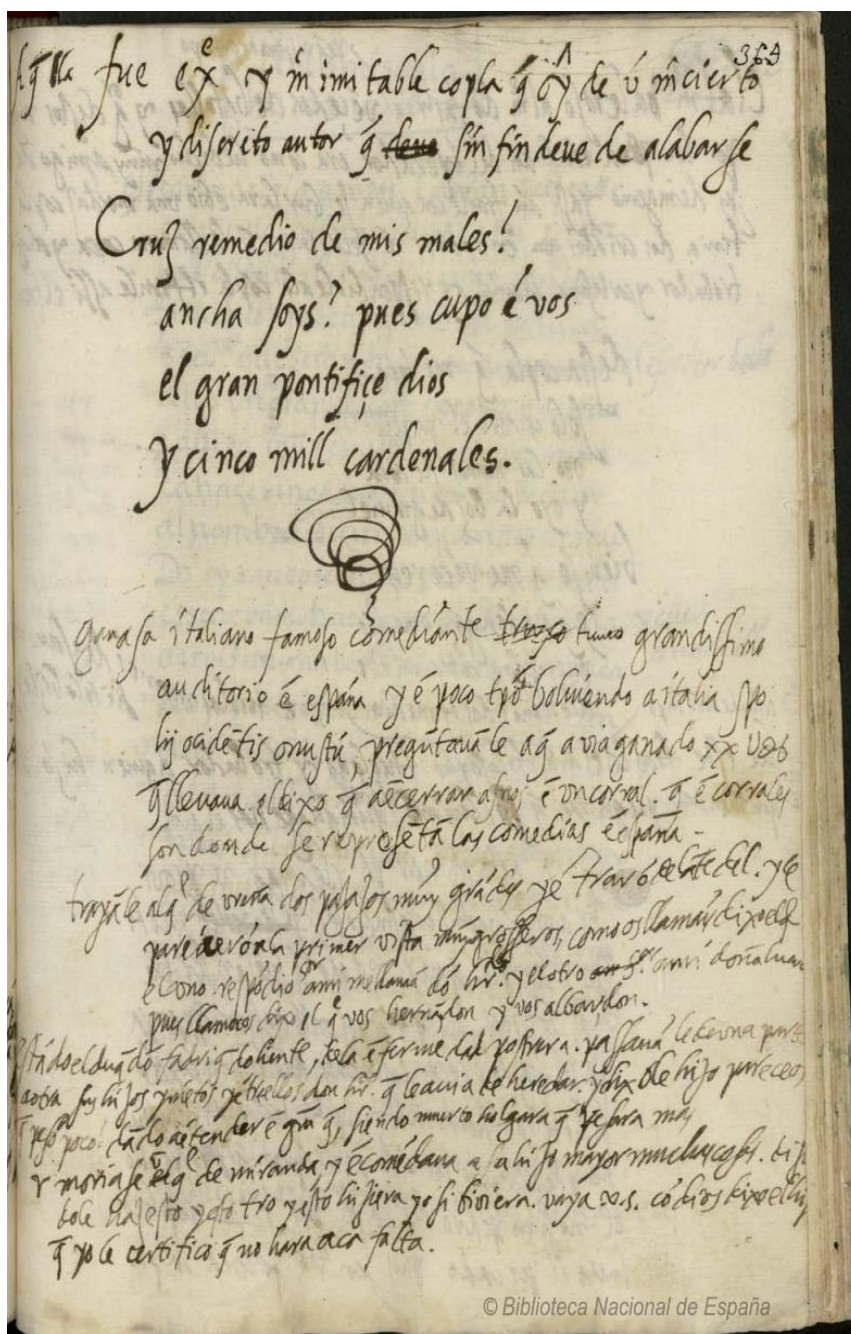 369
fue exe y in imitable copla q̃ oy de ũ incierto
y discreto autor q̃ sin fin deue de alabarse
Cruz remedio de mis males!
ancha soys? pues cupo é vos
el gran pontifiçe dios
y cinco mill cardenales.
Ganasa italiano famoso comediante tuuo grandissimo
auditorio ẽ españa y ẽ poco tp̃o boluiendo a italia spo
lijs ocidẽtis onustũ, pregũtauãle a q̃ auia ganado xx
q̃ lleuaua el dixo q̃ a ẽcerrar asnos ẽ vn corral. q̃ ẽ corrales
son donde se represẽtã las comedias ẽ españa -
trayãle al de dos muy grãdes y ẽ delãte del. y le
parecierõ a la primer vista muy grosseros, como os llamays dixo el
el vno. respõdio a mi me llamã dõ hr̃. y el otro a mi don
pues llamaos dixo el vos hernãdon y vos albardon.
Estãdo el duq̃ dõ fadriq̃ doliente, de la ẽferme dad postrera. passauã le de vna parte
a otra sus hijos y nietos y ẽtrellos don hr̃. q̃ le auia de heredar. y dixole hijo pareceos
q̃ peso poco? dãdo a ẽtender ẽ q̃, siendo muerto holgara q̃ pesara mas
Y moriase el de miranda y ẽcomẽdaua a su hijo mayor muchas cosas.
dole haz esto y esotro y esto hiziera yo si biviera. vaya v.s. cõ dios dixo el hijo
q̃ yo le certifico q̃ no hara aca falta.
© Biblioteca Nacional de España